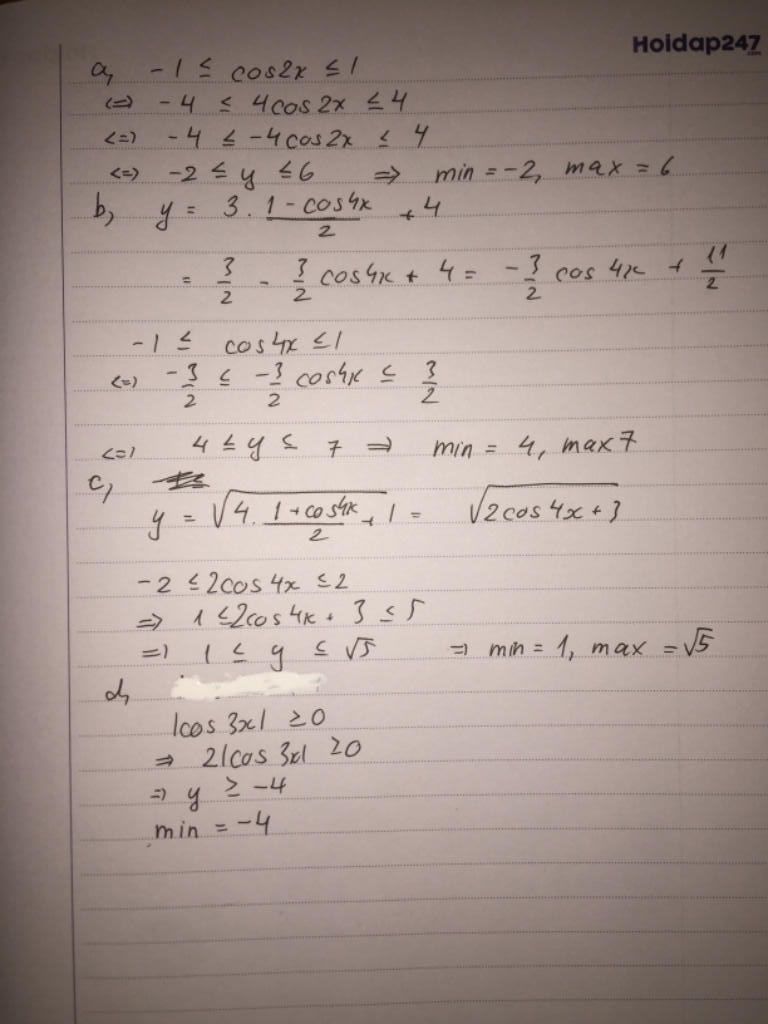 Hoidap247.com
a, -1 ≤ cos2x ≤ 1
<=> -4 ≤ 4cos2x ≤ 4
<=> -4 ≤ -4cos2x ≤ 4
<=> -2 ≤ y ≤ 6 => min = -2, max = 6
b, y = 3 . (1 - cos4x)/2 + 4
= 3/2 - 3/2 cos4x + 4 = -3/2 cos 4x + 11/2
-1 ≤ cos4x ≤ 1
<=> -3/2 ≤ -3/2 cos4x ≤ 3/2
<=> 4 ≤ y ≤ 7 => min = 4, max 7
c,
y = √(4. (1 + cos4x)/2 + 1) = √(2cos4x + 3)
-2 ≤ 2cos4x ≤ 2
=> 1 ≤ 2cos4x + 3 ≤ 5
=> 1 ≤ y ≤ √5 => min = 1, max = √5
d,
|cos 3x| ≥ 0
=> 2|cos 3x| ≥ 0
=> y ≥ -4
min = -4